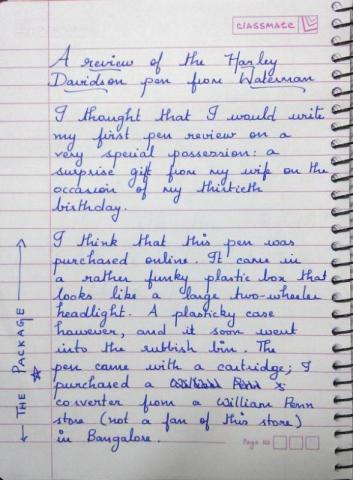 classmate
A review of the Harley
Davidson pen from Waterman
I thought that I would write
my first pen review on a
very special possession: a
surprise gift from my wife on the
occasion of my thirtieth
birthday.
I think that this pen was
purchased online. It came in
a rather funky plastic box that
looks like a large two-wheeler
headlight. A plasticky case
however, and it soon went
into the rubbish bin. The
pen came with a cartridge; I
purchased a
converter from a William Penn
store (not a fan of this store)
in Bangalore.
THE PACKAGE
Page no